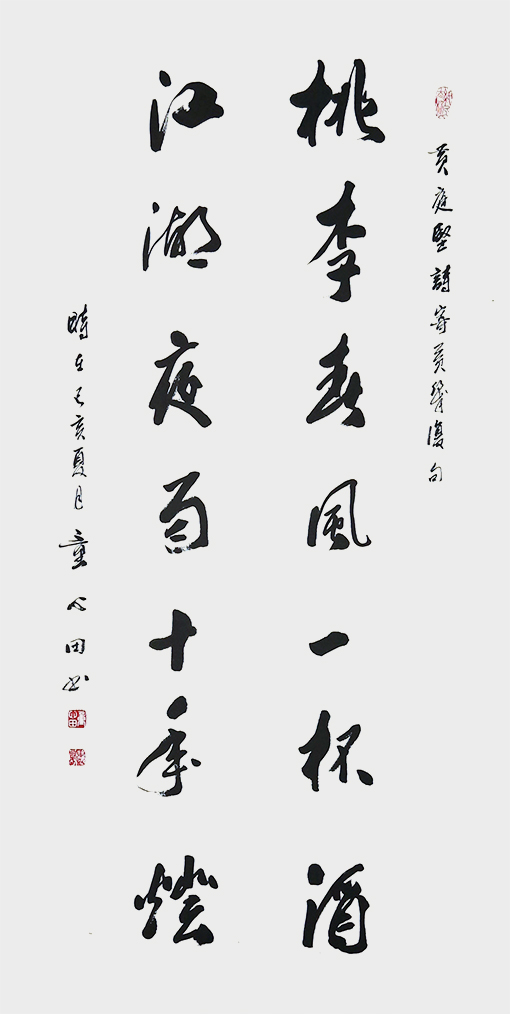 黄庭堅詩寄黄幾復句
桃李春風一杯酒
江湖夜雨十年燈
時在己亥夏月童心田书